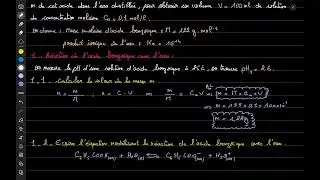 m de cet acide dans l'eau distillée, pour obtenir un volume V = 100 mL de solution
de concentration molaire C₀ = 0,1 mol/L.
On donne : masse molaire d'acide benzoïque : M = 122 g.mol⁻¹
produit ionique de l'eau : Ke = 10⁻¹⁴
1. Réaction de l'acide benzoïque avec l'eau.
On mesure le pH d'une solution d'acide benzoïque à 25°C, on trouve pH₁ = 2,6
1_1_ Calculer la valeur de la masse m.
n = m/M ; n = C.V ⇒ m/M = C.V ⇒ m = M × C₀ × V
⇒ m = 122 × 0,1 × 100×10⁻³
m = 1,22g
1_2_ Ecrire l'équation modélisant la réaction de l'acide benzoïque avec l'eau.
C₆H₅COOH(aq) + H₂O(l) ⇌ C₆H₅COO⁻(aq) + H₃O⁺(aq)